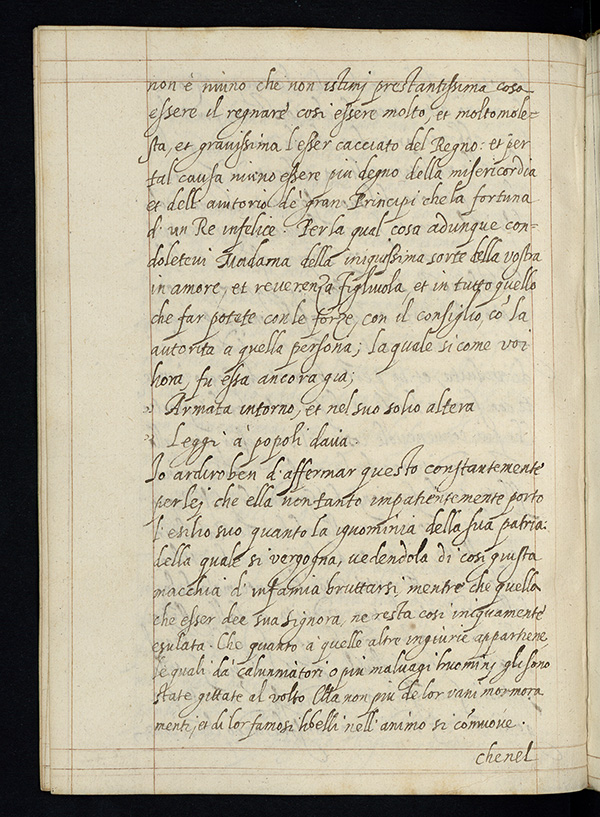 non è niuno che non istimi prestantissima cosa
essere il regnare così essere molto, et molto mole-
sta, et gravissima l'esser cacciato del Regno: et per
tal causa niuno essere piu degno della misericordia
et dell'aiutorio de gran Principi che la fortuna
d'un Re infelice. Per la qual cosa adunque con-
doletevi Madama della iniquissima sorte della vostra
in amore, et reverenza figliuola, et in tutto quello
che far potete con le forze, con il consiglio, cō la
autorita a quella persona; la quale si come voi
hora, fu essa ancora gia;
" Armata intorno, et nel suo solio altera
" Leggi à popoli dava.
Io ardirò ben d'affermar questo constantemente
per lei che ella non tanto impatientemente porto
l'esilio suo quanto la ignominia della sua patria:
della quale si vergogna, vedendola di così giusta
macchia d'infamia bruttarsi, mentre che quella
che esser dee sua signora, ne resta così iniquamente
esulata. Che quanto à quelle altre ingiurie appartiene,
le quali da calunniatori o piu malvagi huomini gli sono
state gittate al volto Ella non piu de lor vani mormora
menti, et di lor famosi libelli nell'animo si comuove.
che nel